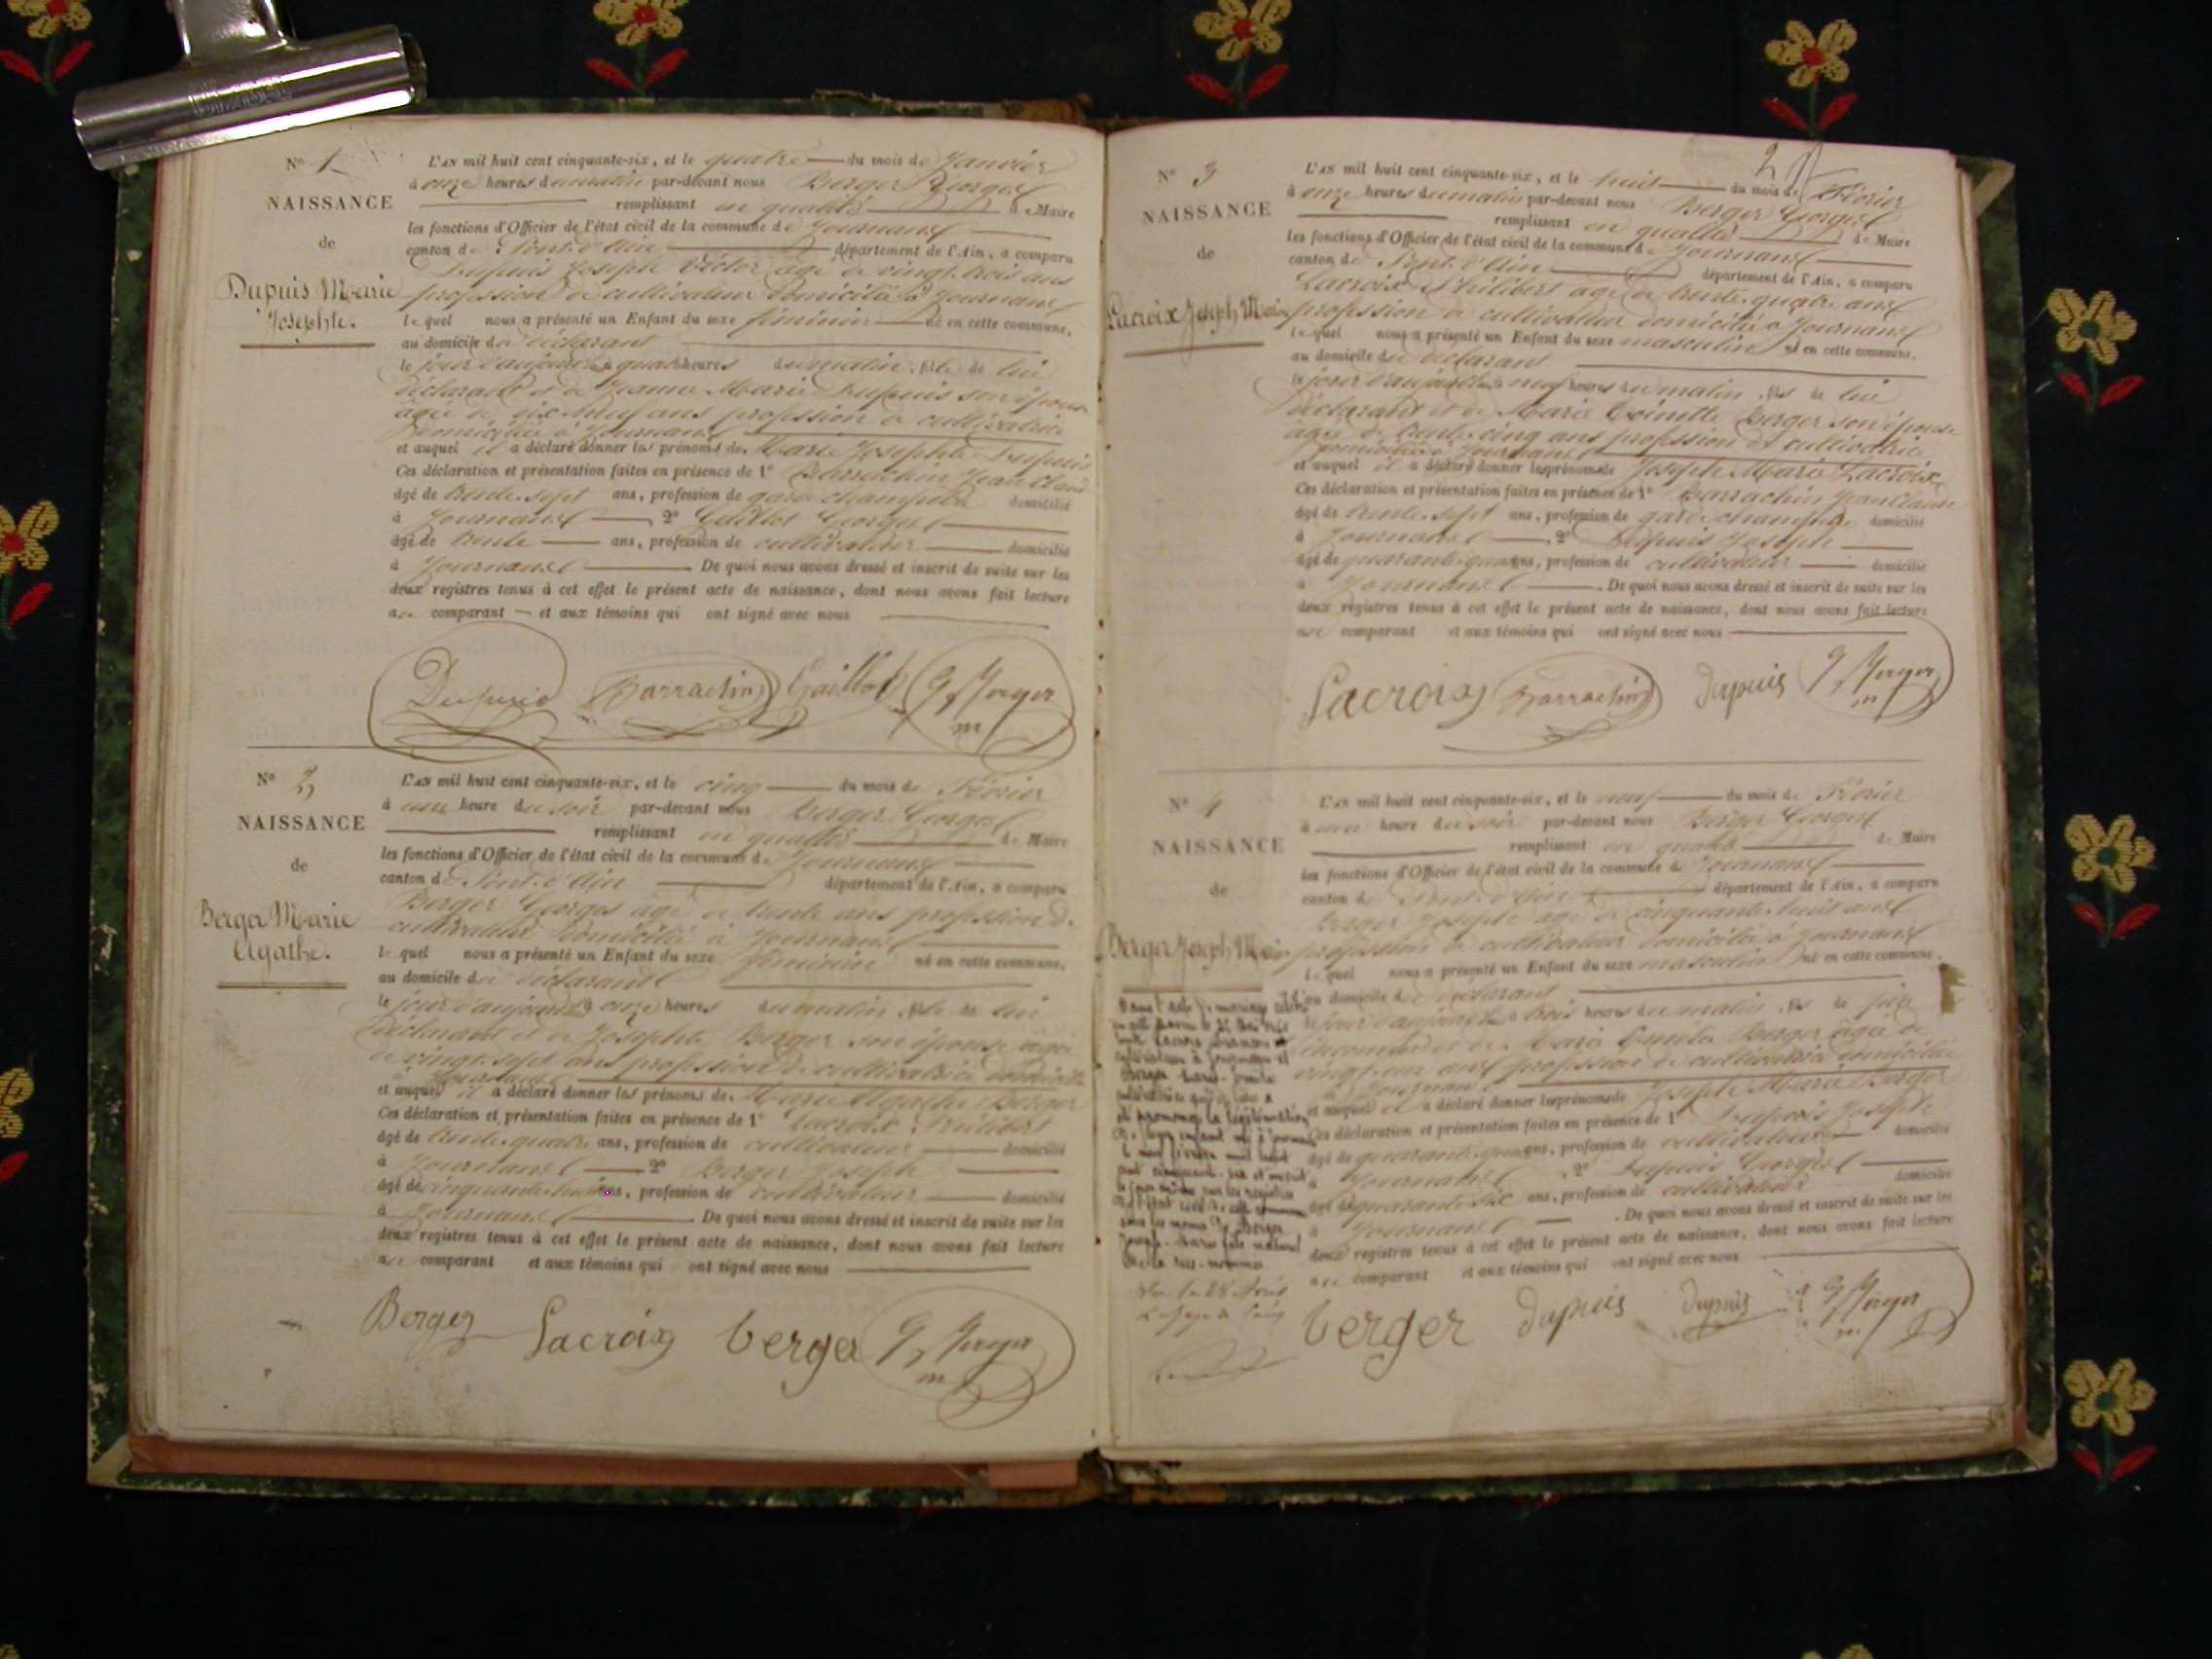 N° 1
NAISSANCE
de
Dupuis Marie
Josephte.
L'AN mil huit cent cinquante-six, et le quatre du mois de Janvier
à onze heures du matin par-devant nous Berger Georges
remplissant en qualité de Maire
les fonctions d'Officier de l'état civil de la commune de Journans
canton de Pont-d'Ain département de l'Ain, a comparu
Dupuis Joseph Victor âgé de vingt-trois ans
profession de cultivateur domicilié à Journans
lequel nous a présenté un Enfant du sexe féminin né en cette commune,
au domicile du déclarant
le jour d'aujourd'hui à quatre heures du matin, fille de lui
déclarant et de Jeanne Marie Dupuis son épouse
âgée de dix-neuf ans profession de cultivatrice
domiciliée à Journans
et auquel il a déclaré donner les prénoms de Marie Josephte Dupuis
Ces déclaration et présentation faites en présence de 1° Barrachin Jean Claude
âgé de trente-sept ans, profession de garde champêtre domicilié
à Journans 2° Gaillot Georges
âgé de trente ans, profession de cultivateur domicilié
à Journans De quoi nous avons dressé et inscrit de suite sur les
deux registres tenus à cet effet le présent acte de naissance, dont nous avons fait lecture
au comparant et aux témoins qui ont signé avec nous
Dupuis Barrachin Gaillot G Berger
m
N° 2
NAISSANCE
de
Berger Marie
Agathe.
L'AN mil huit cent cinquante-six, et le cinq du mois de Février
à une heure du soir par-devant nous Berger Georges
remplissant en qualité de Maire
les fonctions d'Officier de l'état civil de la commune de Journans
canton de Pont-d'Ain département de l'Ain, a comparu
Berger Georges âgé de trente ans profession de
cultivateur domicilié à Journans
lequel nous a présenté un Enfant du sexe féminin né en cette commune,
au domicile du déclarant
le jour d'aujourd'hui à onze heures du matin, fille de lui
déclarant et de Josephte Berger son épouse âgée
de vingt-sept ans profession de cultivatrice domiciliée
à Journans
et auquel il a déclaré donner les prénoms de Marie Agathe Berger
Ces déclaration et présentation faites en présence de 1° Lacroix Philibert
âgé de trente-quatre ans, profession de cultivateur domicilié
à Journans 2° Berger Joseph
âgé de cinquante-huit ans, profession de cultivateur domicilié
à Journans De quoi nous avons dressé et inscrit de suite sur les
deux registres tenus à cet effet le présent acte de naissance, dont nous avons fait lecture
au comparant et aux témoins qui ont signé avec nous
Berger Lacroix berger G Berger
m
2
N° 3
NAISSANCE
de
Lacroix Joseph Marie
L'AN mil huit cent cinquante-six, et le huit du mois de Février
à onze heures du matin par-devant nous Berger Georges
remplissant en qualité de Maire
les fonctions d'Officier de l'état civil de la commune de Journans
canton de Pont-d'Ain département de l'Ain, a comparu
Lacroix Philibert âgé de trente-quatre ans
profession de cultivateur domicilié à Journans
lequel nous a présenté un Enfant du sexe masculin né en cette commune,
au domicile du déclarant
le jour d'aujourd'hui à neuf heures du matin, fils de lui
déclarant et de Marie Toinette Berger son épouse
âgée de trente-cinq ans profession de cultivatrice
domiciliée à Journans
et auquel il a déclaré donner les prénoms de Joseph Marie Lacroix
Ces déclaration et présentation faites en présence de 1° Barrachin Jean Claude
âgé de trente-sept ans, profession de garde champêtre domicilié
à Journans 2° Dupuis Joseph
âgé de quarante ans, profession de cultivateur domicilié
à Journans De quoi nous avons dressé et inscrit de suite sur les
deux registres tenus à cet effet le présent acte de naissance, dont nous avons fait lecture
au comparant et aux témoins qui ont signé avec nous
Lacroix Barrachin dupuis G Berger
m
N° 4
NAISSANCE
de
Berger Joseph Marie
L'AN mil huit cent cinquante-six, et le neuf du mois de Février
à une heure du soir par-devant nous Berger Georges
remplissant en qualité de Maire
les fonctions d'Officier de l'état civil de la commune de Journans
canton de Pont-d'Ain département de l'Ain, a comparu
Berger Joseph âgé de cinquante-huit ans
profession de cultivateur domicilié à Journans
lequel nous a présenté un Enfant du sexe masculin né en cette commune,
au domicile du déclarant
le jour d'aujourd'hui à trois heures du matin, fils de père
inconnu et de Marie Berger âgée de
vingt-un ans profession de cultivatrice domiciliée
à Journans
et auquel il a déclaré donner les prénoms de Joseph Marie Berger
Ces déclaration et présentation faites en présence de 1° Dupuis Joseph
âgé de quarante ans, profession de cultivateur domicilié
à Journans 2° Dupuis Georges
âgé de quarante-six ans, profession de cultivateur domicilié
à Journans De quoi nous avons dressé et inscrit de suite sur les
deux registres tenus à cet effet le présent acte de naissance, dont nous avons fait lecture
au comparant et aux témoins qui ont signé avec nous
berger dupuis dupuis G Berger
m